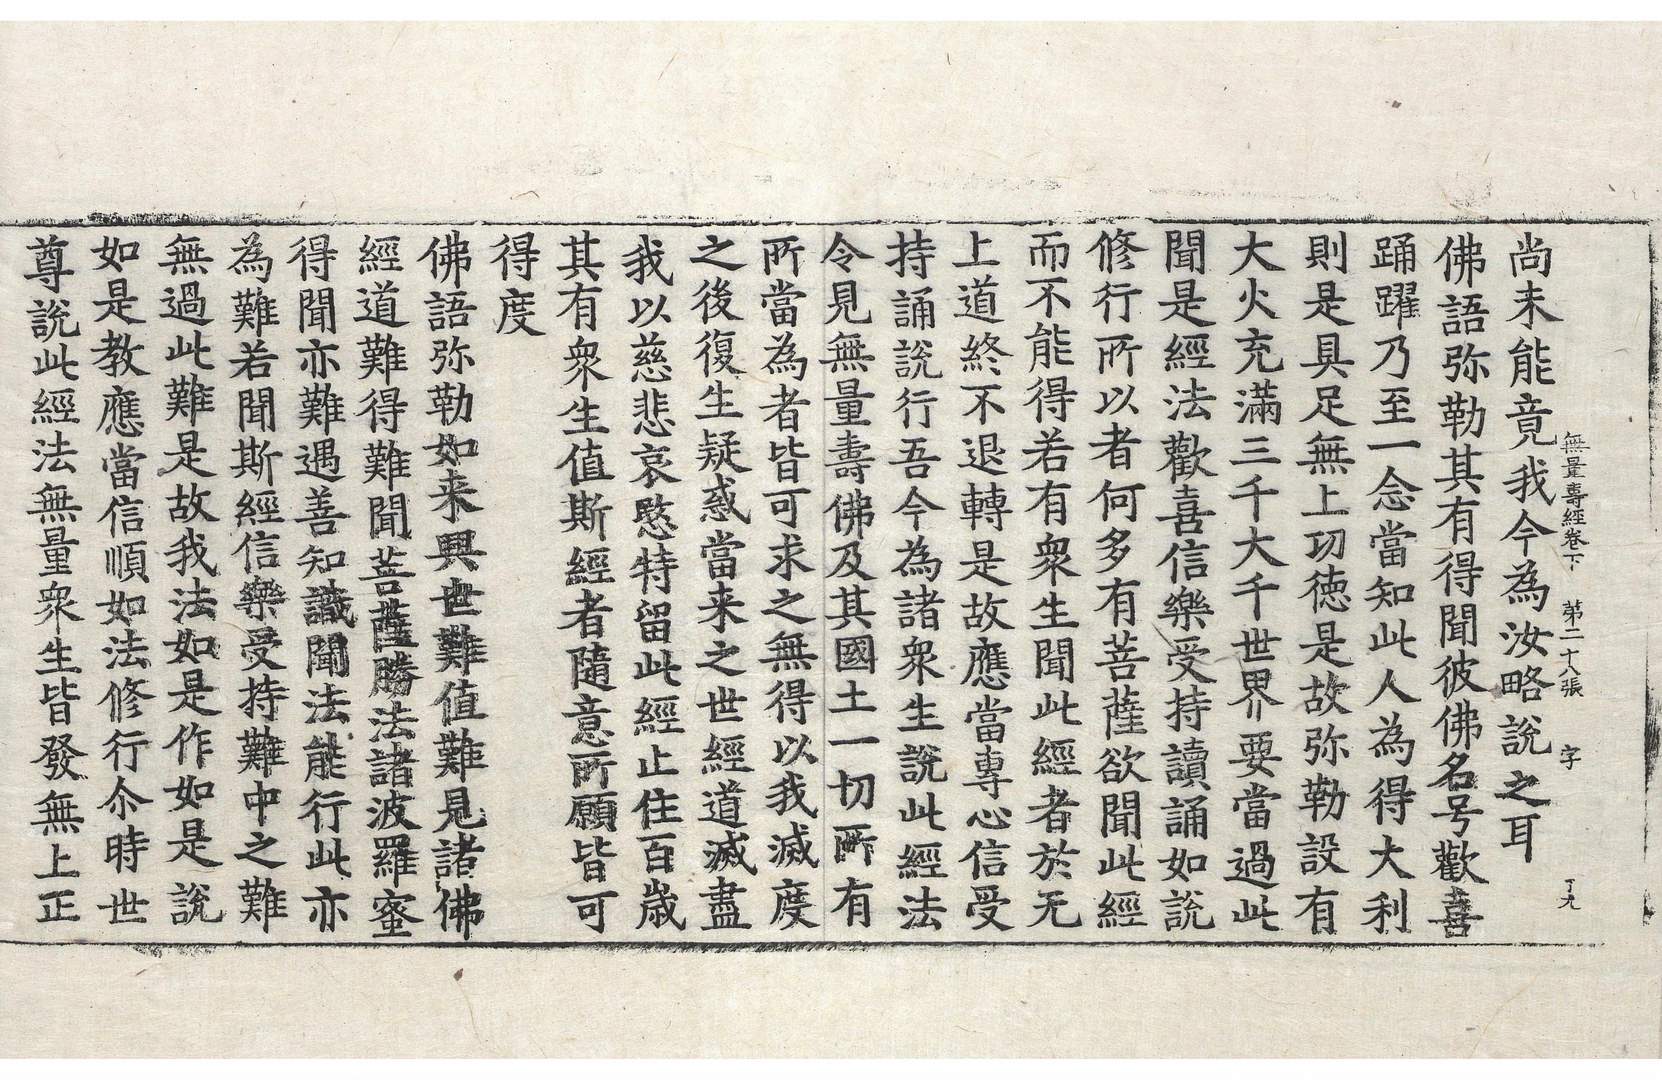 無量壽經卷下 第二十八張 字 丁九
尚未能竟我今為汝略說之耳
佛語弥勒其有得聞彼佛名号歡喜
踊躍乃至一念當知此人為得大利
則是具足無上功德是故弥勒設有
大火充滿三千大千世界要當過此
聞是經法歡喜信樂受持讀誦如說
修行所以者何多有菩薩欲聞此經
而不能得若有衆生聞此經者於无
上道終不退轉是故應當專心信受
持誦說行吾今為諸衆生說此經法
令見無量壽佛及其國土一切所有
所當為者皆可求之無得以我滅度
之後復生疑惑當来之世經道滅盡
我以慈悲哀愍特留此經止住百歲
其有衆生值斯經者隨意所願皆可
得度
佛語弥勒如来興世難值難見諸佛
經道難得難聞菩薩勝法諸波羅蜜
得聞亦難遇善知識聞法能行此亦
為難若聞斯經信樂受持難中之難
無過此難是故我法如是作如是說
如是教應當信順如法修行尒時世
尊說此經法無量衆生皆發無上正